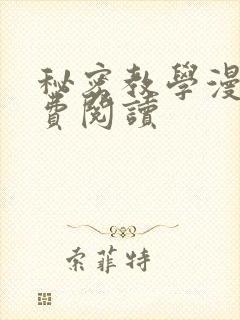 秘密教學漫
費閱讀
索菲特